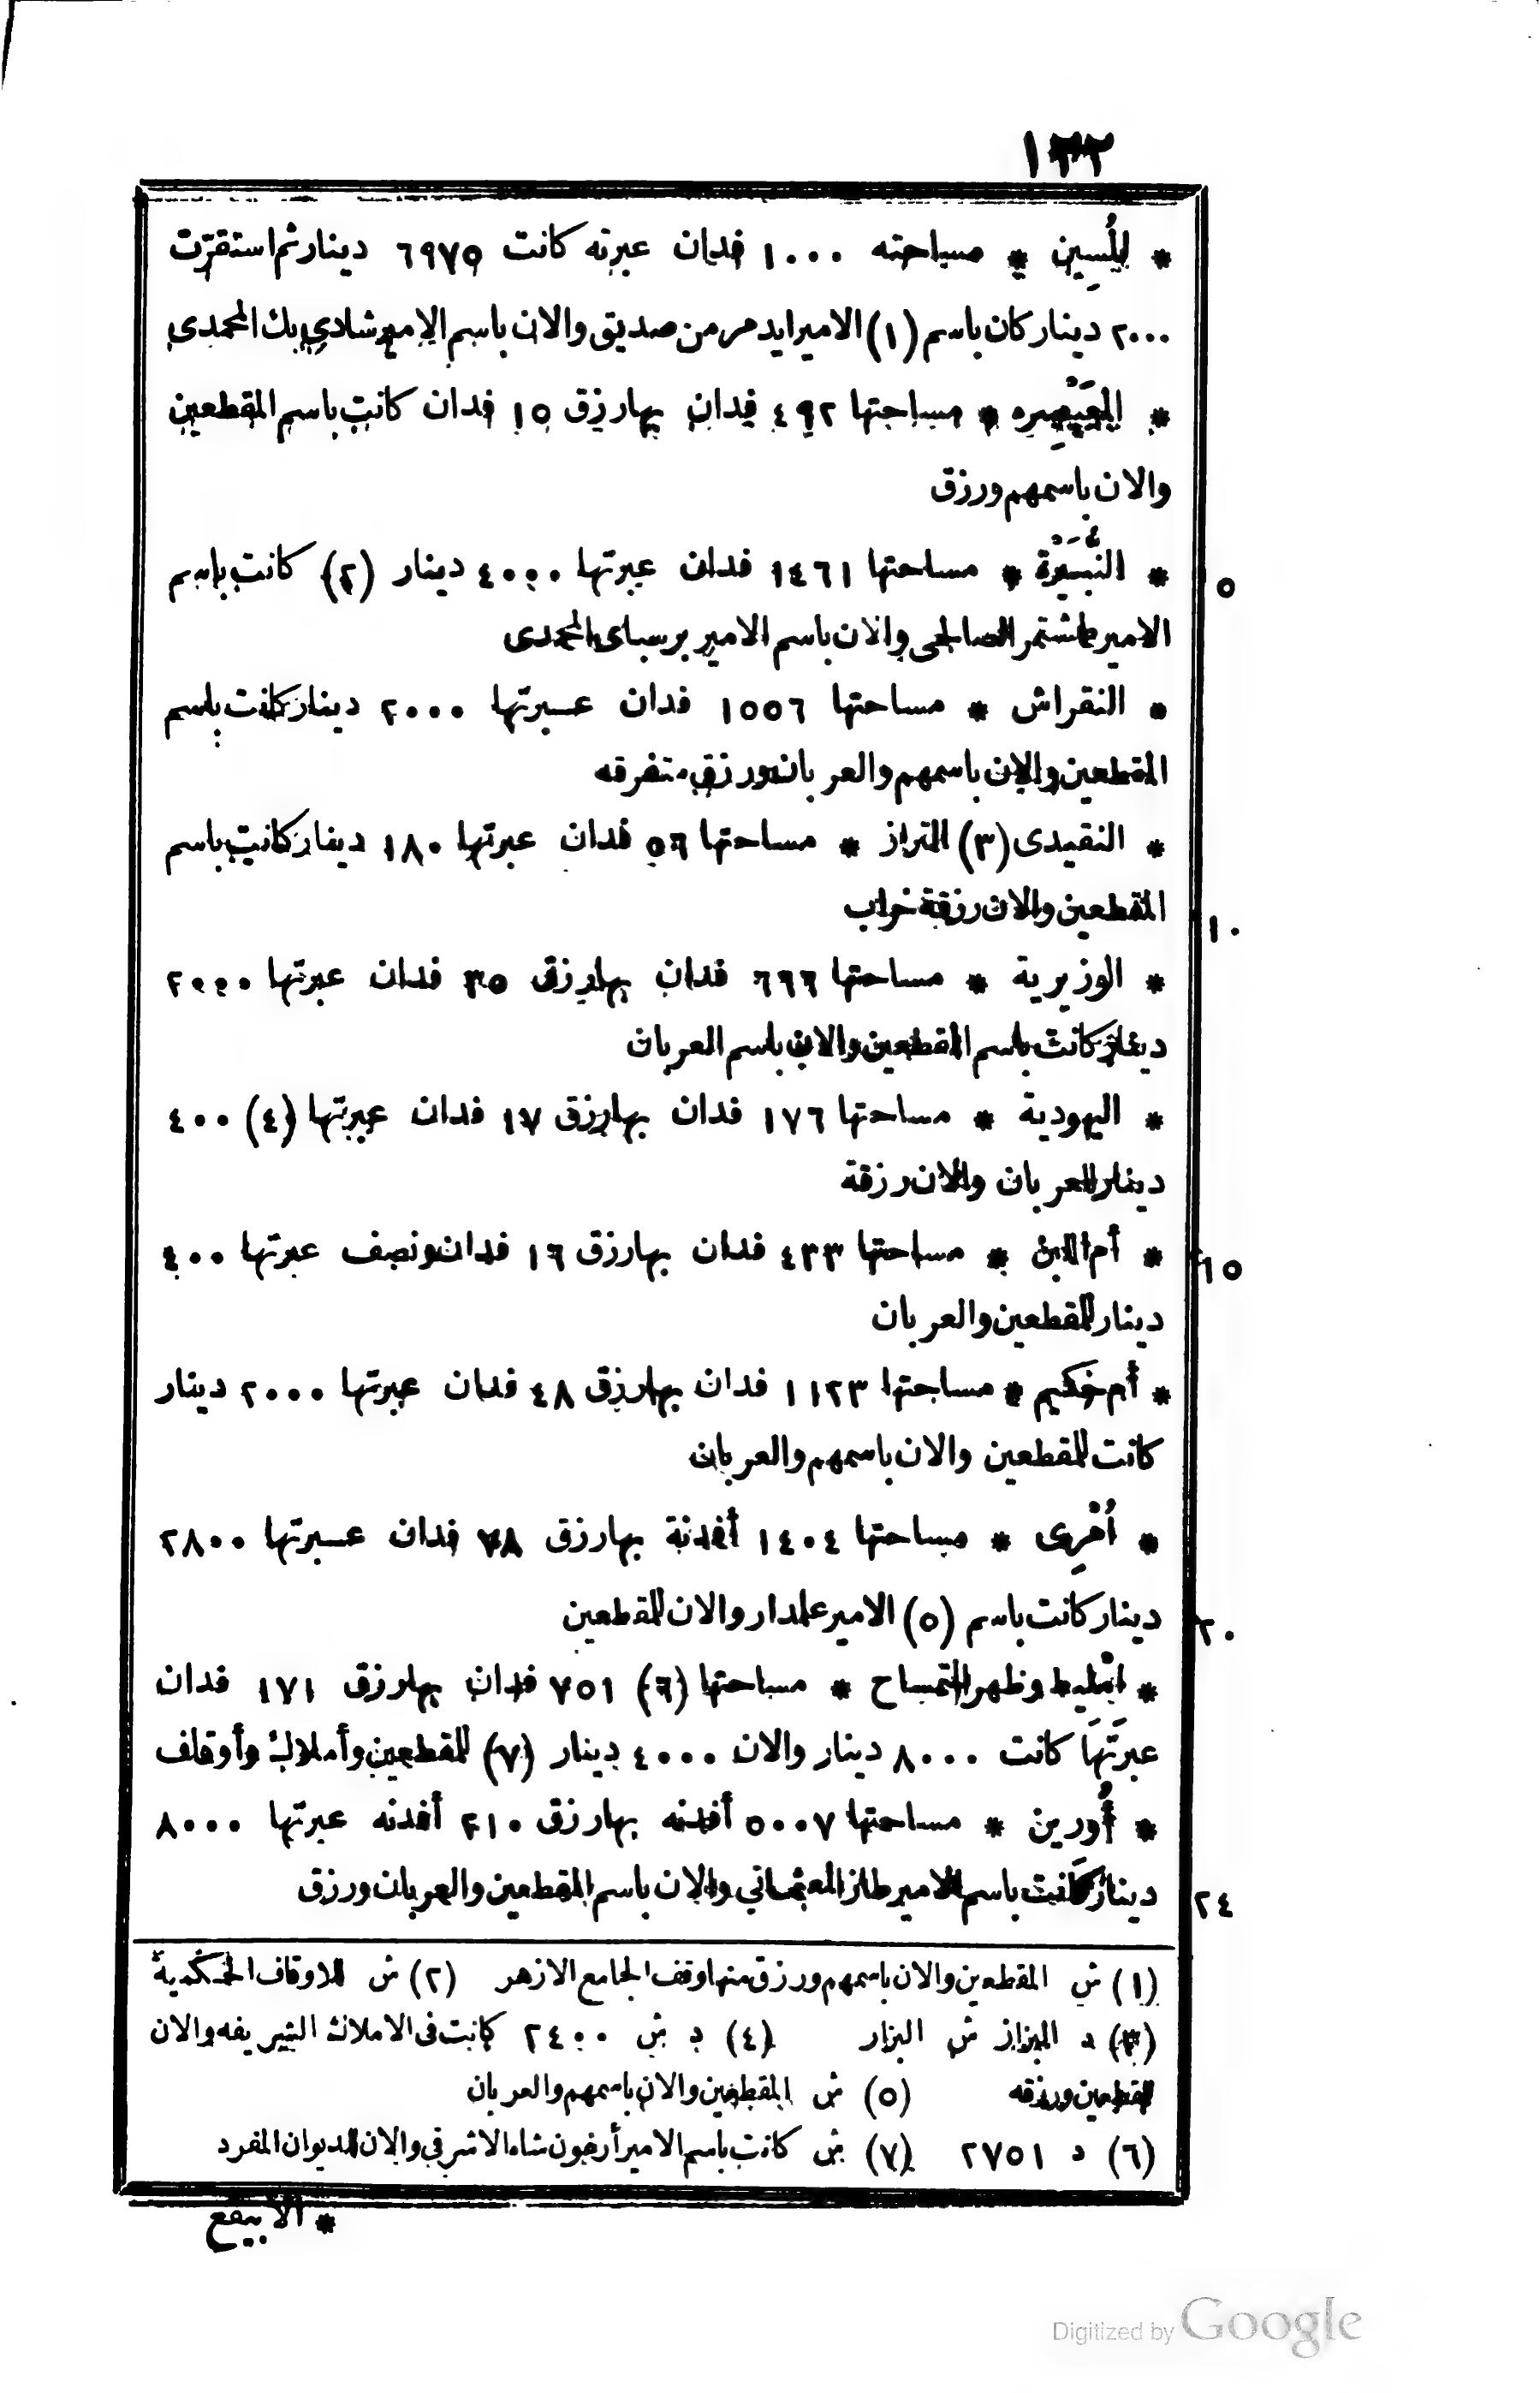 ١٣٢
* لبُلُسِين * مساحته ١٠٠٠ فدان عبرته كانت ٦٩٧٥ دينار ثم استقرّت
٢٠٠٠ دينار كان باسم (١) الامير ايدمر من صديق والان باسم الامير شادي بك المحمدى
* المعَيْصِره * مساحتها ٤٩٢ فدان بها رزق ١٥ فدان كانت باسم المقطعين
والان باسمهم ورزق
* النُّبَيْرَة * مساحتها ١٤٦١ فدان عبرتها ٤٠٠٠ دينار (٢) كانت باسم
٥
الامير طشتمر الصالحى والان باسم الامير برسباى المحمدى
* النقراش * مساحتها ١٥٥٦ فدان عبرتها ٢٠٠٠ دينار كانت باسم
المقطعين والان باسمهم والعربان ورزق متفرقه
* النقيدى (٣) التراز * مساحتها ٥٦ فدان عبرتها ١٨٠ دينار كانت باسم
المقطعين والان رزقة خراب
١٠
* الوزيرية * مساحتها ٦٦٦ فدان بها رزق ٣٥ فدان عبرتها ٢٠٠٠
دينار كانت باسم المقطعين والان باسم العربان
* اليهودية * مساحتها ١٧٦ فدان بها رزق ١٧ فدان عبرتها (٤) ٤٠٠
دينار للعربان والان رزقة
* أم اللبن * مساحتها ٤٣٣ فدان بها رزق ١٦ فدان ونصف عبرتها ٤٠٠
١٥
دينار للمقطعين والعربان
* أم حَكيم * مساحتها ١١٢٣ فدان بها رزق ٤٨ فدان عبرتها ٢٠٠٠ دينار
كانت للمقطعين والان باسمهم والعربان
* أُمْرِى * مساحتها ١٤٠٤ أفدنة بها رزق ٧٨ فدان عبرتها ٢٨٠٠
دينار كانت باسم (٥) الامير علمدار والان للمقطعين
٢٠
* ابْليط وظهر التمساح * مساحتها (٦) ٧٥١ فدان بها رزق ١٧١ فدان
عبرَتَهَا كانت ٨٠٠٠ دينار والان ٤٠٠٠ دينار (٧) للمقطعين وأملاك وأوقاف
* أُورين * مساحتها ٥٠٠٧ أفدنه بها رزق ٢١٠ أفدنه عبرتها ٨٠٠٠
دينار كانت باسم الامير طاز العثمانى والان باسم المقطعين والعربان ورزق
٢٤
(١) ش المقطعين والان باسمهم ورزق منها وقف الجامع الازهر (٢) ش للاوقاف الحكمية
(٣) د البزاز ش البزار (٤) د ش ٢٤٠٠ كانت فى الاملاك الشريفه والان
للمقطعين ورزقه (٥) ش المقطعين والان باسمهم والعربان
(٦) د ٢٧٥١ (٧) ش كانت باسم الامير أرغون شاه الاشرفى والان للديوان المفرد
* الابيقع
Digitized by Google